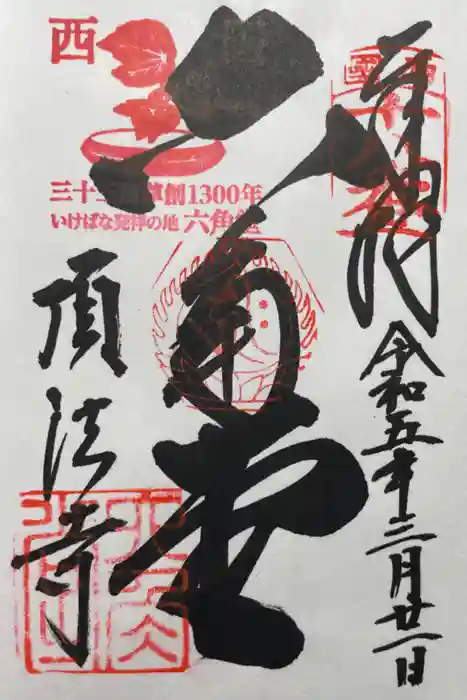 奉拝
令和五年三月廿一日
西
三十三所草創1300年
いけばな発祥の地 六角堂
六角堂
頂法寺